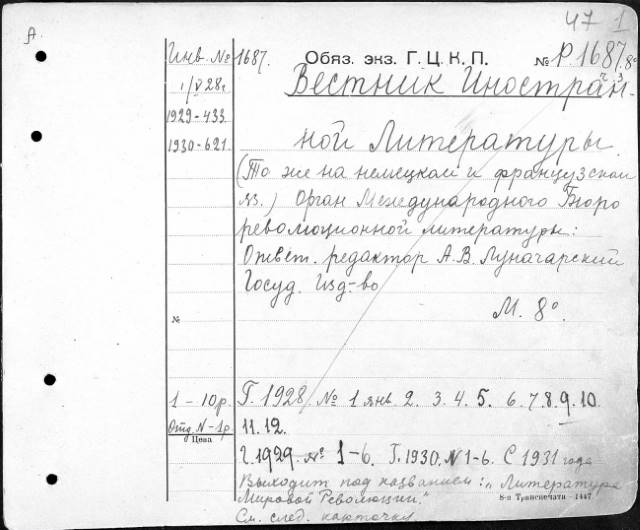 А
47 1
Инв. № 1687. Обяз. экз. Г.Ц.К.П. № Р.1687.8°
1/V 28г Вестник Иностран-
1929-433
1930-621. ной Литературы.
(То же на немецком и французском
яз.) Орган Международного Бюро
революционной литературы:
Ответ. редактор А.В. Луначарский
Госуд. Изд-во
№ М. 8°.
1 - 10р. Г. 1928 № 1 янв. 2. 3. 4. 5. 6. 7. 8. 9. 10.
Отд. N - 1р. 11. 12.
Цена
Г. 1929 № 1-6. Г. 1930. N 1-6. С 1931 года
выходит под названием: "Литература
Мировой Революции."
8-я Транспечати - 1447
См. след. карточку